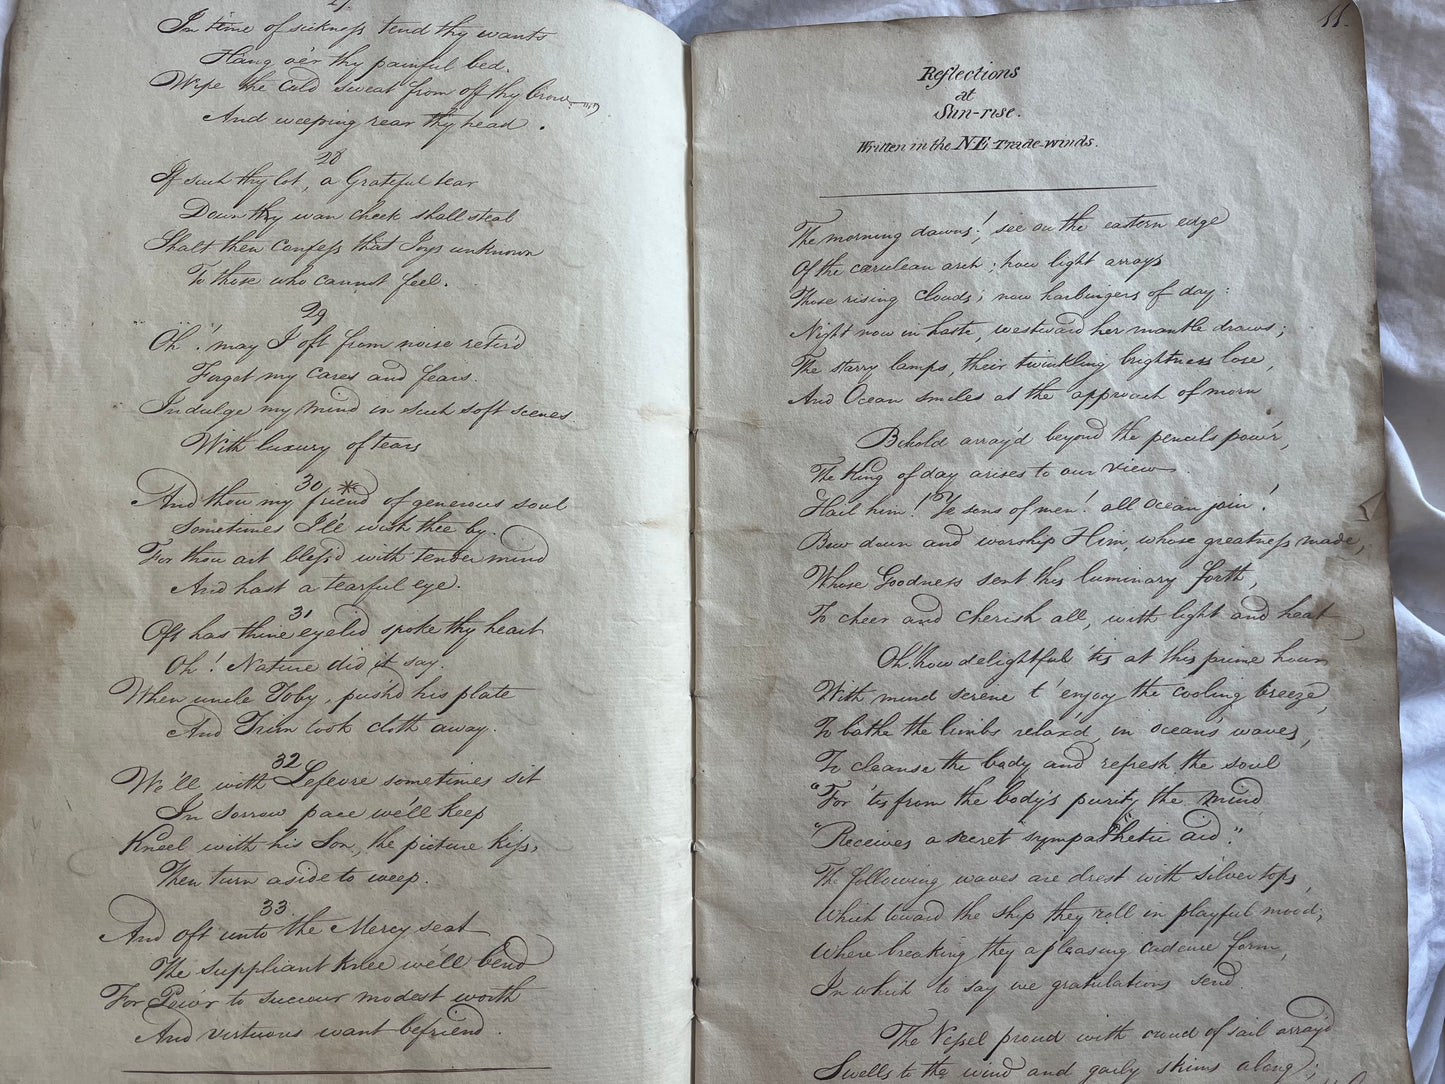 27
In time of sickness tend thy wants
Hang o'er thy painful bed.
Wipe the Cold sweat from off thy brow
And weeping rear thy head.
28
If such thy lot, a Grateful tear
Down thy wan cheek shall steal
Shalt then confess that Joys unknown
To those who cannot feel.
29
Oh! may I oft from noise retir'd
Forget my Cares and fears.
Indulge my mind in such soft scenes
With luxury of tears
30
And thou my friend * of generous soul
Sometimes I'll wish thee by.
For thou art bless'd with tender mind
And hast a tearful eye.
31
Oft has thine eyelid spoke thy heart
Oh! Nature did it say.
When uncle Toby, push'd his plate
And Trim took cloth away.
32
We'll with Lefevre sometimes sit
In sorrow pace we'll keep
Kneel with his Son, the picture kiss,
Then turn aside to weep.
33
And oft unto the Mercy seat
The suppliant knee we'll bend
For Pow'r to succour modest worth
And virtuous want befriend.
11.
Reflections
at
Sun-rise.
Written in the NE Trade-winds.
The morning dawns! see on the eastern edge
Of the cærulean arch; how light arrays
Those rising Clouds; now harbingers of day:
Night now in haste, westward her mantle draws;
The starry lamps, their twinkling brightness lose,
And Ocean smiles at the approach of morn
Behold array'd beyond the pencils pow'r,
The King of day arises to our view
Hail him! Ye sons of men! all Ocean join!
Bow down and worship Him, whose greatness made,
Whose Goodness sent this luminary forth,
To cheer and cherish all, with light and heat
Oh! how delightful 'tis at this prime hour
With mind serene t' enjoy the cooling breeze,
To bathe the limbs relax'd, in ocean's waves,
To cleanse the body and refresh the soul
"For 'tis from the body's purity the mind
"Receives a secret sympathetic aid".
The following waves are drest with silver tops,
Which toward the ship they roll in playful mood;
Where breaking they a pleasing cadence form,
In which to say we gratulations send
The Vessel proud with crowd of sail array'd
Swells to the wind and gaily skims along;